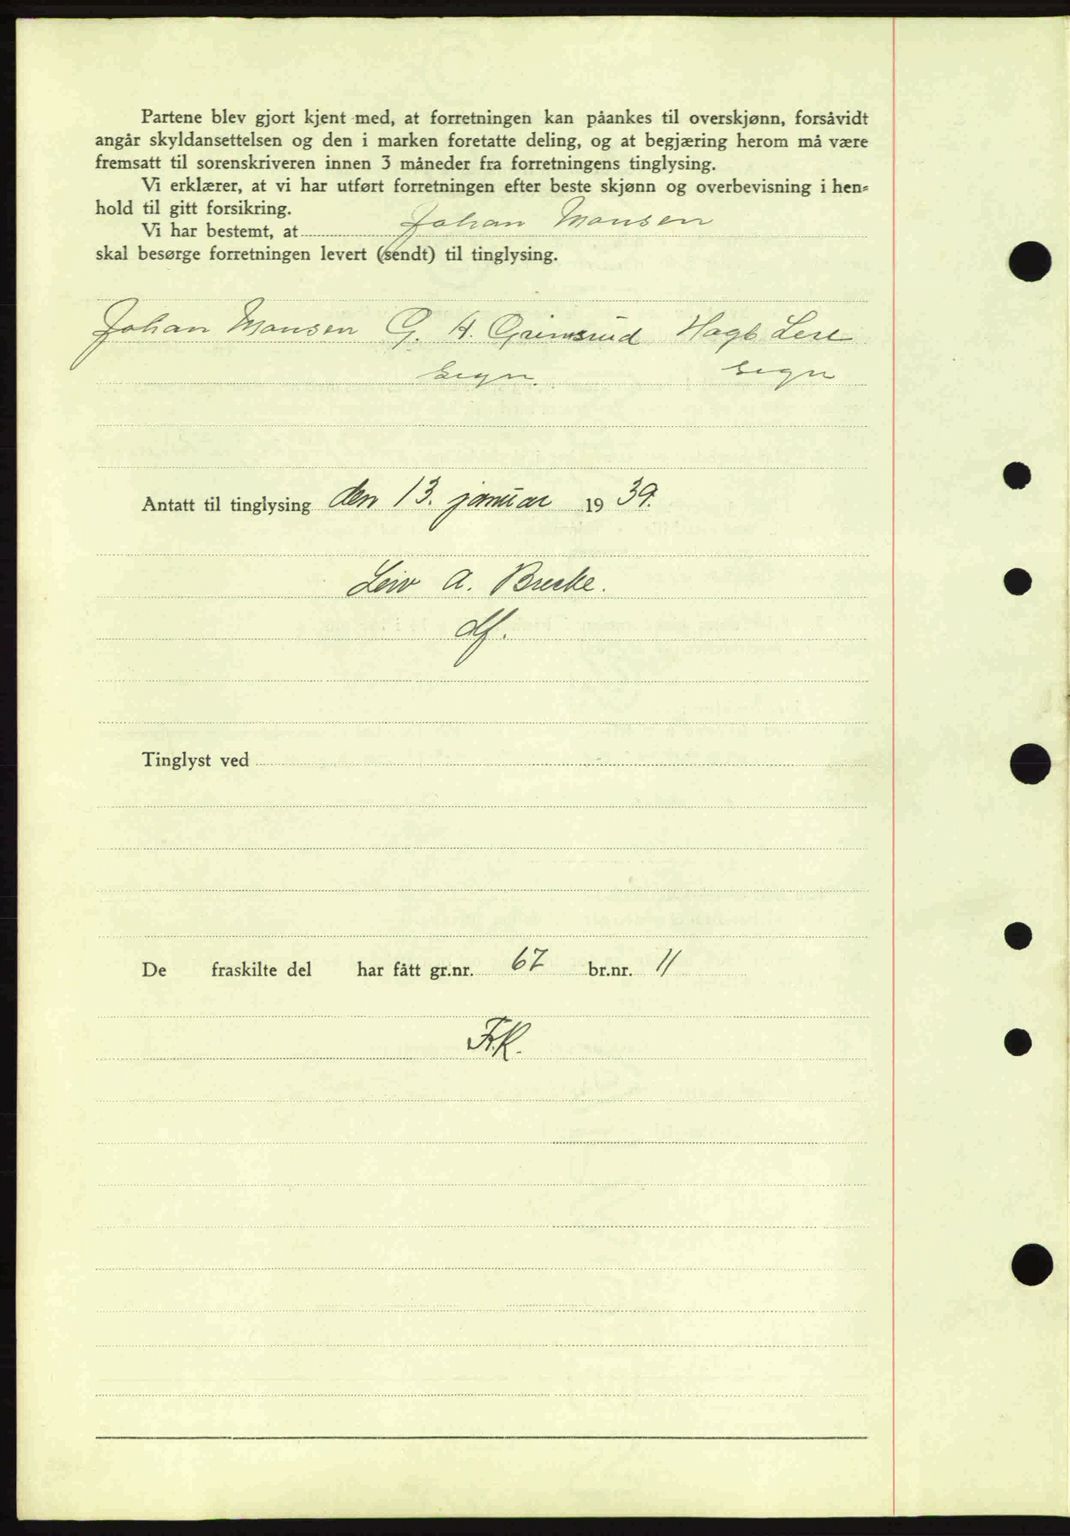 Partene blev gjort kjent med, at forretningen kan påankes til overskjønn, forsåvidt
angår skyldansettelsen og den i marken foretatte deling, og at begjæring herom må være
fremsatt til sorenskriveren innen 3 måneder fra forretningens tinglysing.
Vi erklærer, at vi har utført forretningen efter beste skjønn og overbevisning i hen-
hold til gitt forsikring.
Vi har bestemt, at Johan Monsen
skal besørge forretningen levert (sendt) til tinglysing.
Johan Monsen G. H. Grimsrud Hagb Lere
sign. sign
Antatt til tinglysing den 13. januar 1939.
Leiv A. Brecke.
df.
Tinglyst ved
De fraskilte del har fått gr.nr. 67 br.nr. 11
F.K.